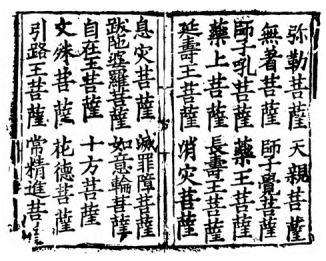 弥勒菩薩 天親菩薩
無著菩薩 師子覺菩薩
師子吼菩薩 藥王菩薩
藥上菩薩 長壽王菩薩
延壽王菩薩 消灾菩薩
息灾菩薩 滅罪障菩薩
跋陁婆羅菩薩 如意輪菩薩
自在王菩薩 十方菩薩
文殊菩薩 花德菩薩
引路王菩薩 常精進菩